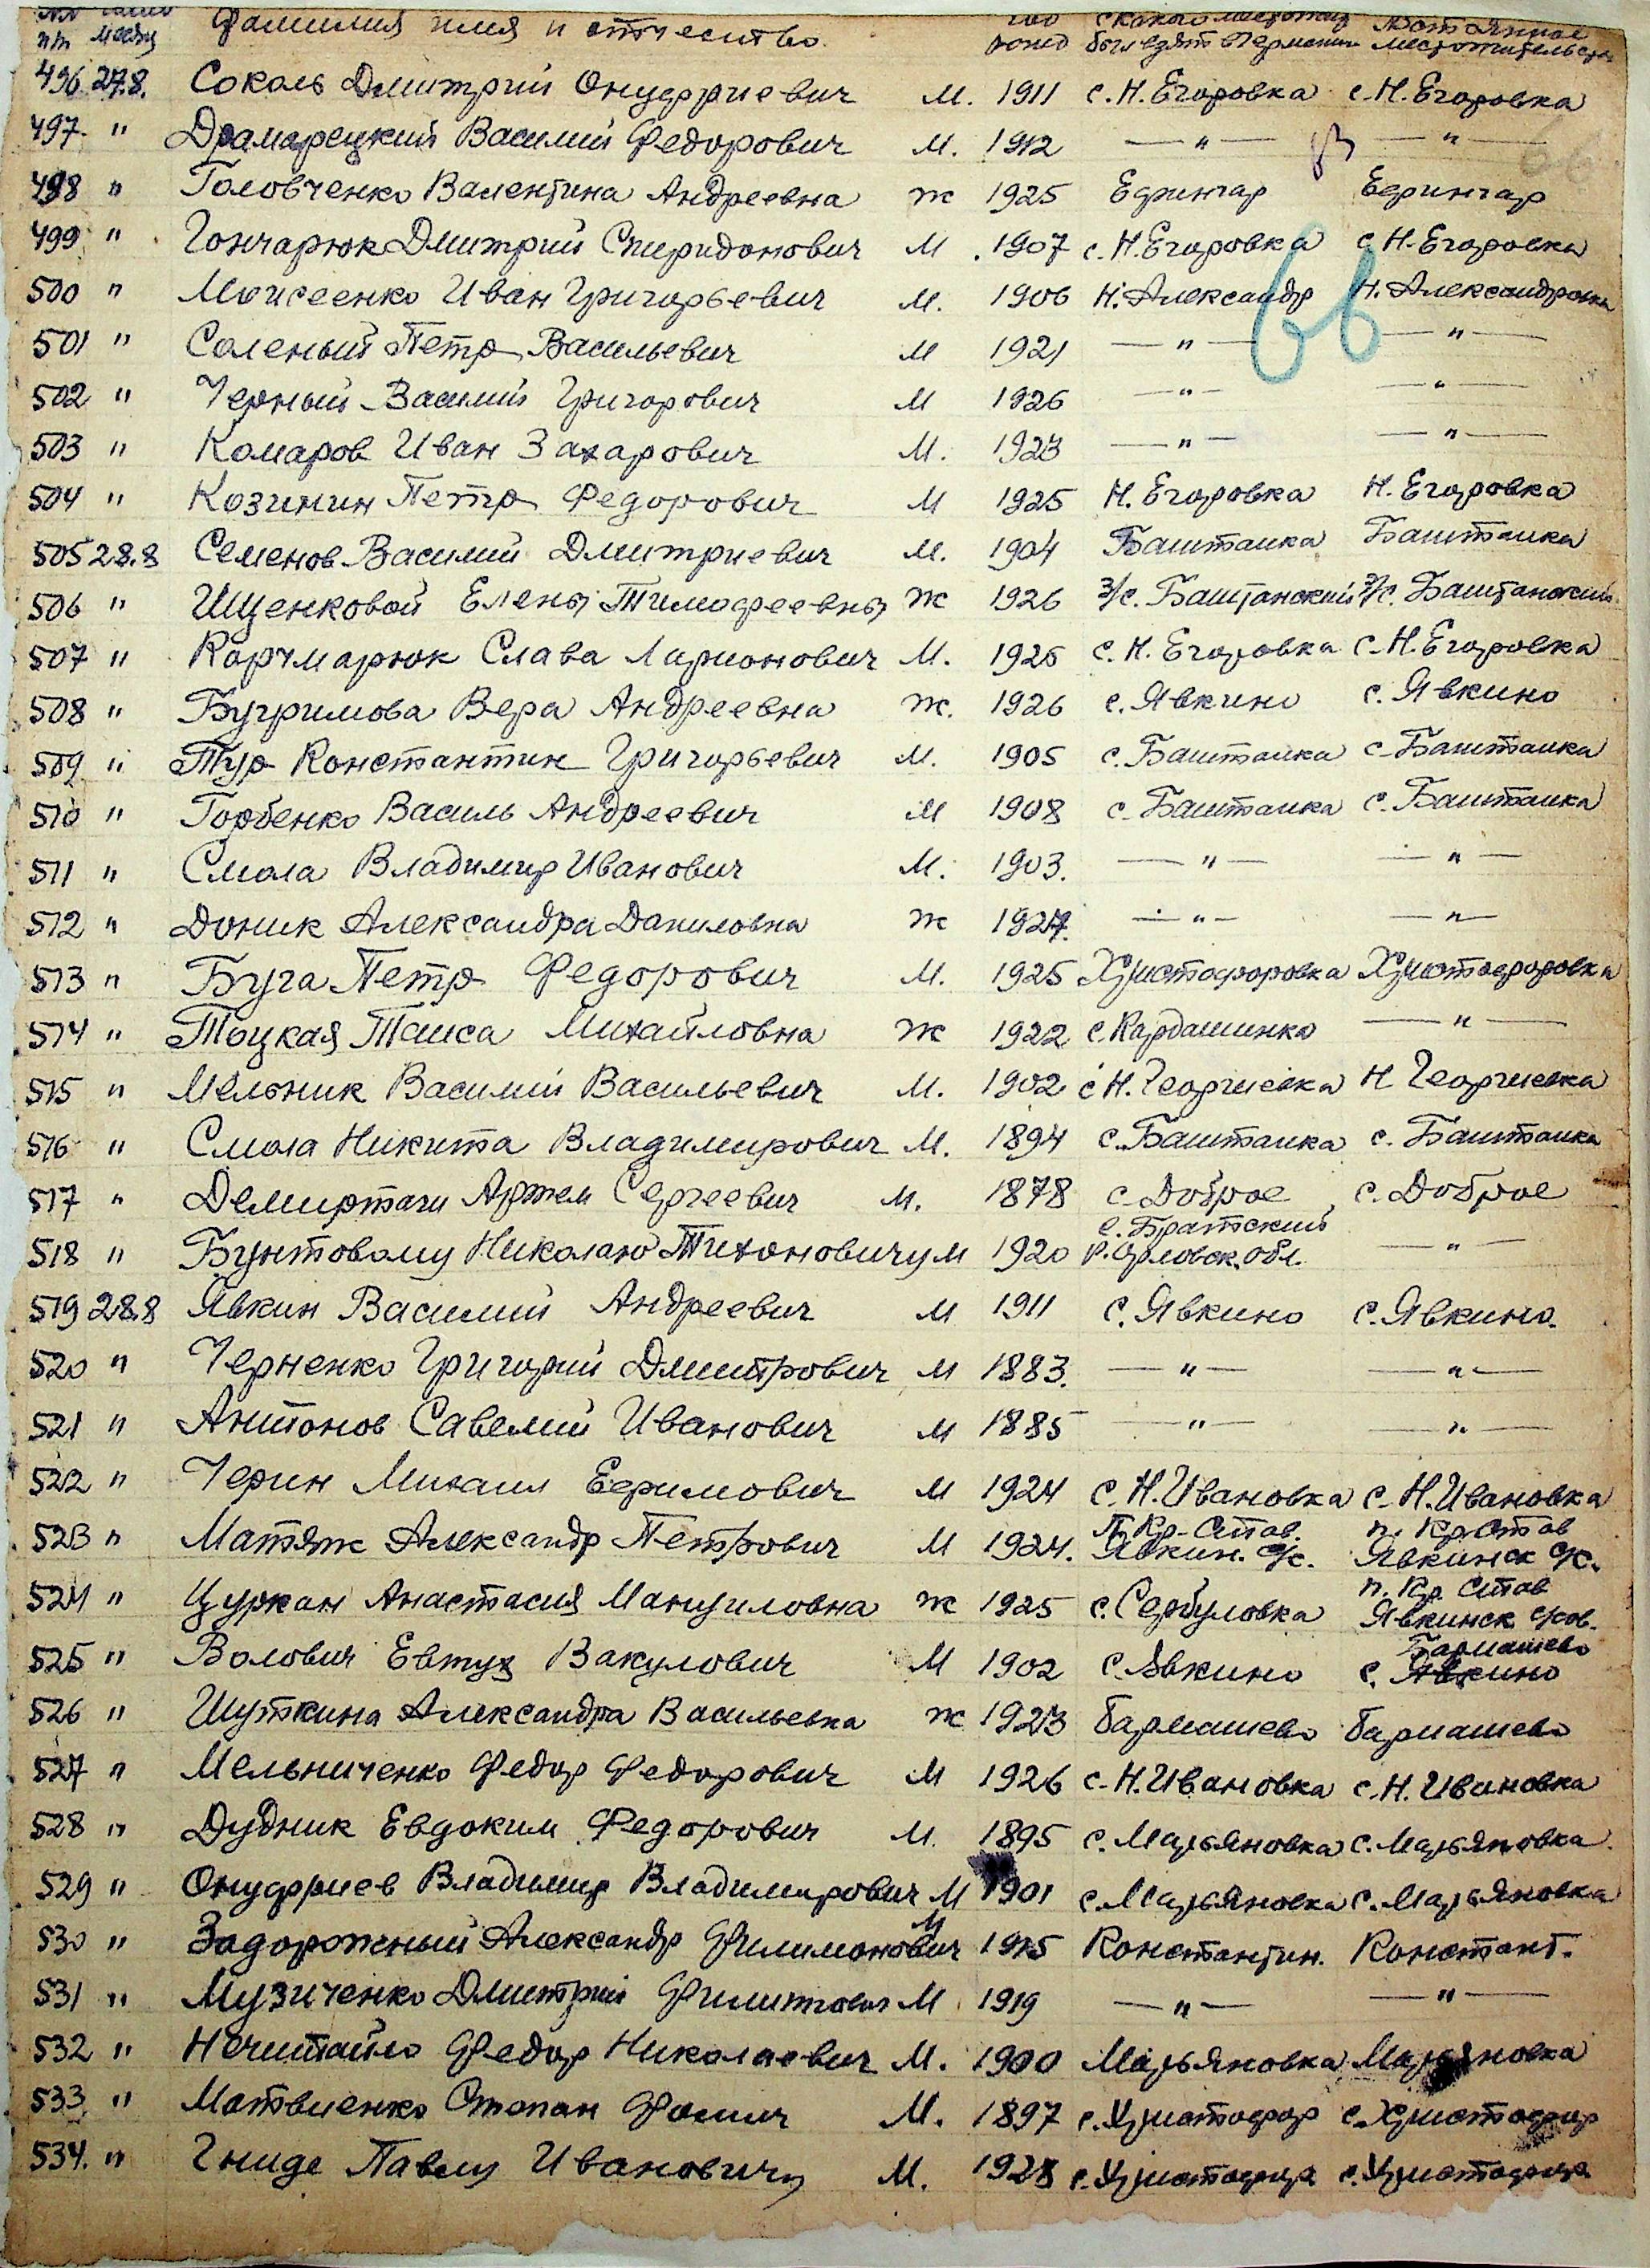 №№ число Фамилия имя и отчество год с какого местожит.
пп месяц рожд был взят в Германию местожительства
496 27.8. Соколь Дмитрий Онуфриевич М. 1911 с. Н. Егоровка с. Н. Егоровка
497 " Драмарецкий Василий Федорович М. 1912 — " — — " —
498 " Головченко Валентина Андреевна Ж 1925 Ефингар Ефингар
499 " Гончарюк Дмитрий Спиридонович М. 1907 с. Н. Егоровка с. Н. Егоровка
500 " Моисеенко Иван Григорьевич М. 1906 Н. Александр Н. Александровка
501 " Соленый Петр Васильевич М 1921 — " — — " —
502 " Черный Василий Григорович М 1926 — " — — " —
503 " Комаров Иван Захарович М. 1923 — " — — " —
504 " Козинин Петр Федорович М 1925 Н. Егоровка Н. Егоровка
505 28.8 Семенов Василий Дмитриевич М. 1904 Баштанка Баштанка
506 " Ищенковой Елены Тимофеевны Ж 1926 з/с. Баштанский з/с. Баштанский
507 " Карчмарюк Слава Ларионович М. 1925 с. Н. Егоровка с. Н. Егоровка
508 " Бугримова Вера Андреевна Ж. 1926 с. Явкино с. Явкино
509 " Тур Константин Григорьевич М. 1905 с. Баштанка с. Баштанка
510 " Горбенко Василь Андреевич М 1908 с. Баштанка с. Баштанка
511 " Смола Владимир Иванович М. 1903. — " — — " —
512 " Доник Александра Даниловна Ж 1927. — " — — " —
513 " Буга Петр Федорович М. 1925 Христофоровка Христофоровка
514 " Тоцкая Таиса Михайловна Ж 1922 с. Кардашинка — " —
515 " Мельник Василий Васильевич М. 1902 с Н. Георгиевка Н Георгиевка
516 " Смола Никита Владимирович М. 1894 с. Баштанка с. Баштанка
517 " Демиртачи Артем Сергеевич М. 1878 с. Доброе с. Доброе
с. Братский
518 " Бунтовому Николаю Тихоновичу М 1920 р. Орловск. обл. — " —
519 28.8 Явкин Василий Андреевич М 1911 с. Явкино с. Явкино.
520 " Черненко Григорий Дмитрович М 1883. — " — — " —
521 " Антонов Савелий Иванович М 1885 — " — — " —
522 " Черин Михаил Ефимович М 1924 с. Н. Ивановка с. Н. Ивановка
П. Кр. Став. п. Кр Став
523 " Матяж Александр Петрович М 1924. Явкин. с/с. Явкинск с/с.
п. Кр. Став
524 " Цуркан Анастасия Мануиловна Ж 1925 с. Сербуловка Явкинск сов.
Бармашево
525 " Волович Евтух Вакулович М 1902 с. Явкино с. Явкино
526 " Шуткина Александра Васильевна Ж 1923 Бармашево Бармашево
527 " Мельниченко Федор Федорович М 1926 с. Н. Ивановка с. Н. Ивановка
528 " Дудник Евдоким Федорович М. 1895 с. Марьяновка с. Марьяновка.
529 " Онуфриев Владимир Владимирович М 1901 с. Марьяновка с. Марьяновка
530 " Задорожный Александр Филимонович М 1915 Константин. Констант.
531 " Музиченко Дмитрий Филиппович М 1919 — " — — " —
532 " Нечитайло Федор Николаевич М. 1900 Марьяновка Марьяновка
533 " Матвиенко Степан Фомич М. 1897 с. Христофор с. Христофор
534. " Гниде Павлу Ивановичу М. 1928 с. Христофора с. Христофора
66